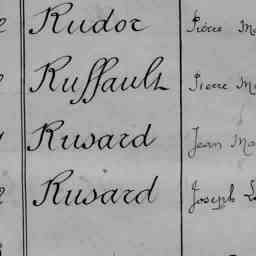 Rudor Pierre
Ruffault Pierre
Rusard Jean
Rusard Joseph